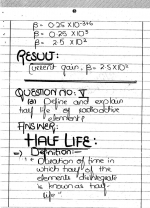 β = 0.25 × 10⁻³⁺⁶
β = 0.25 × 10³
β = 2.5 × 10²
RESULT:
Current gain, β = 2.5×10²
QUESTION no: V
(a) Define and explain
half life of radioactive
element?
ANSWER:
HALF LIFE:
⇒ Definition:-
"Duration of time in
which half of the
elements disintegrate
is known as half-
life"